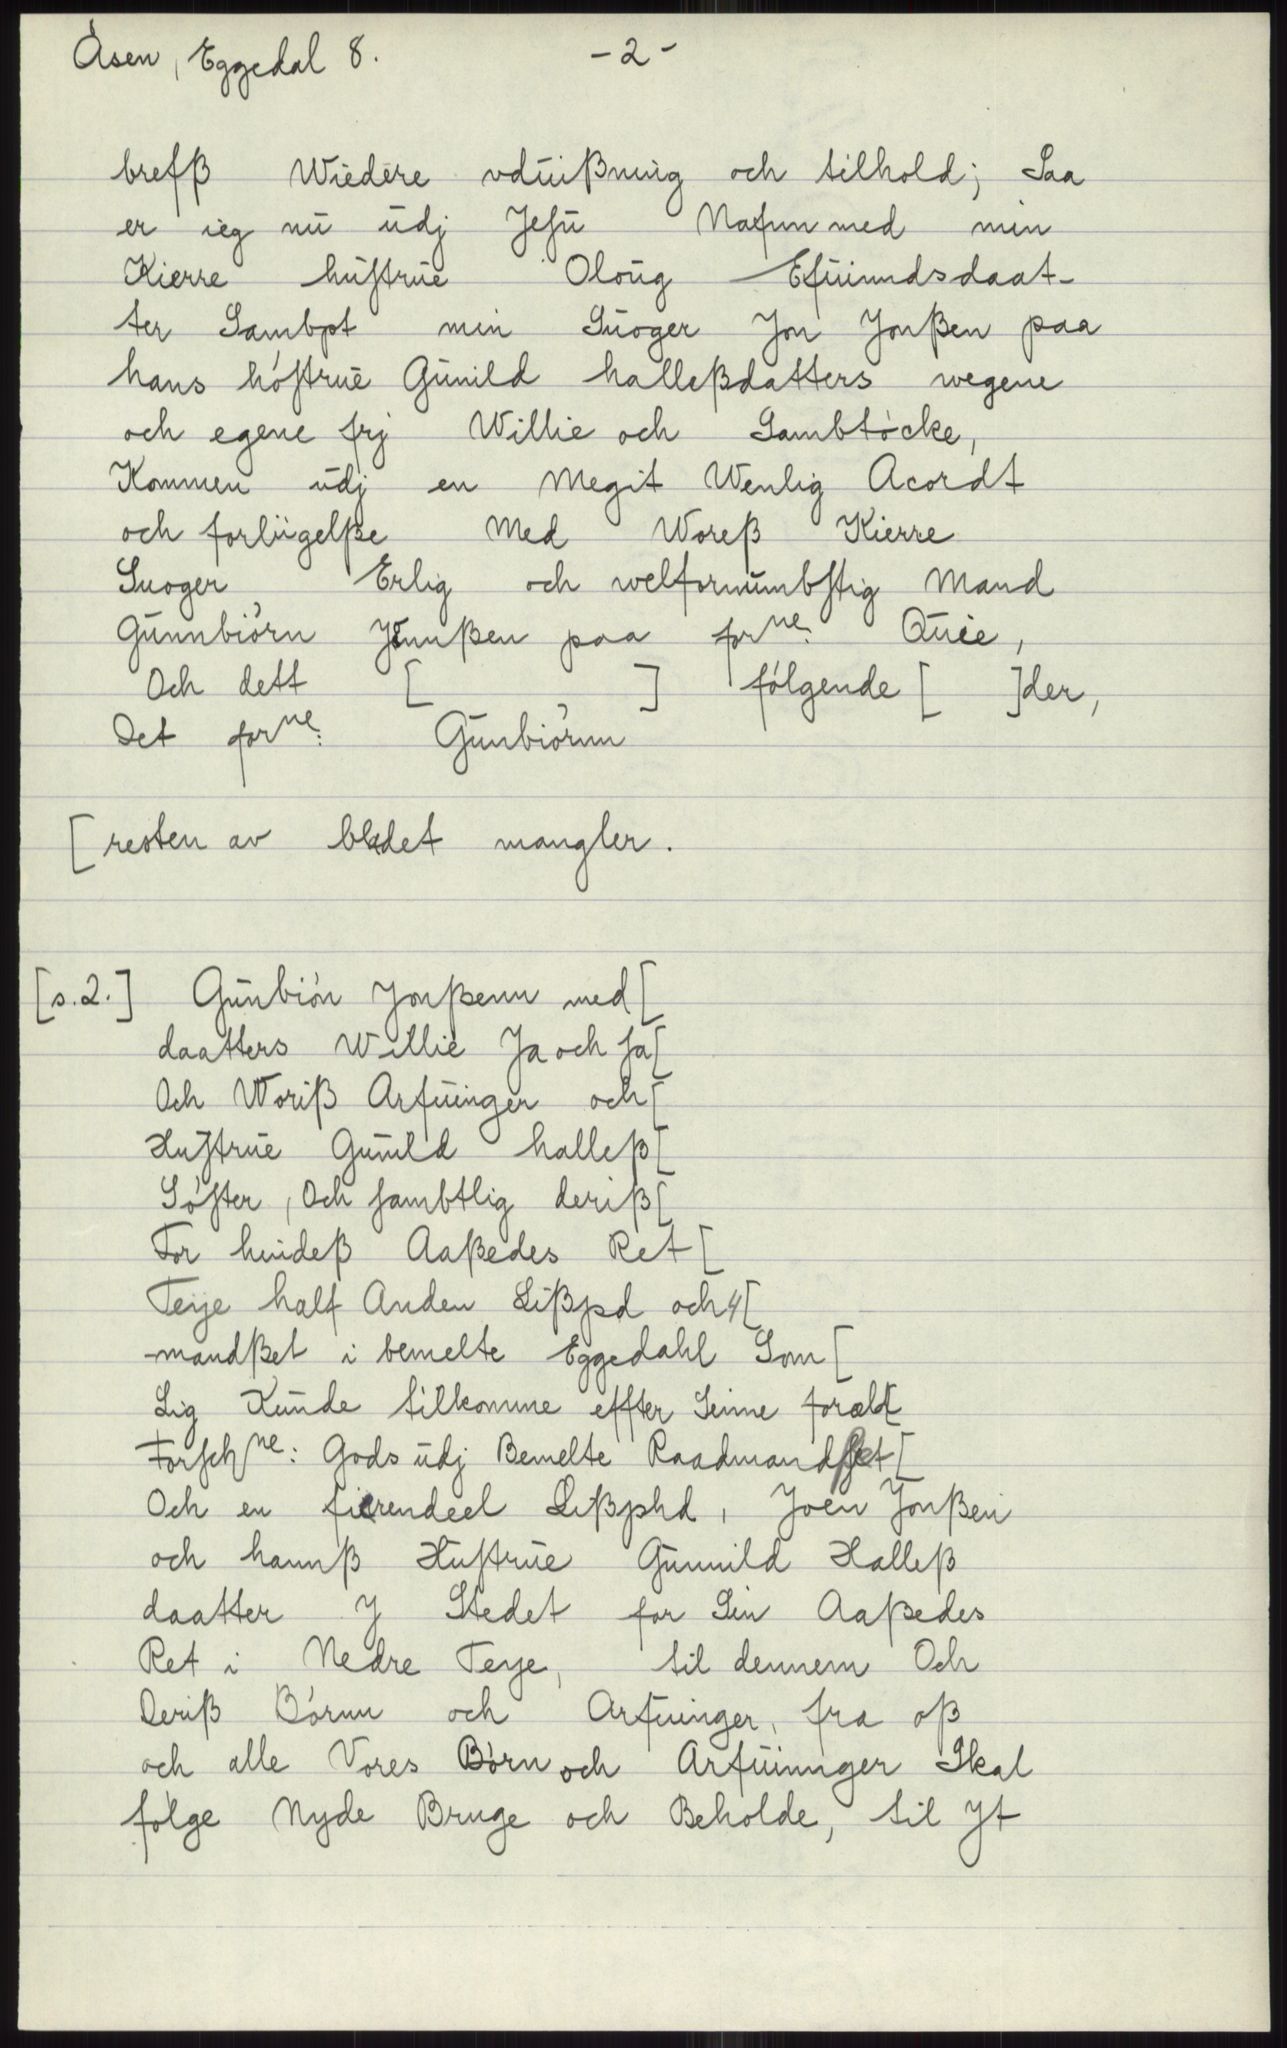 Åsen, Eggedal 8. -2-
brefß Wiedere vduißning och tilhold; Saa
er ieg nu udj Jesu Nafnn med min
Kierre hustrue Oloug Efuindsdaat-
ter Sambpt min Suoger Jon Jonßen paa
hans høstrue Gunild halleßdatters wegene
och egene frj Willie och Sambtøcke,
Kommen udj en Megit Wenlig Acordt
och forliigelße Med Woreß Kierre
Suoger Erlig och welfornumbstig Mand
Gunnbiørn Jonnßen paa forne: Quie,
Och dett [ ] følgende [ ]der,
Det forne: Gunbiørnn
[resten av bladet mangler.
[s.2.] Gunbiøn Jonßenn med[
daatters Willie Ja och Ja[
Och Woriß Arfuinger och[
Hustrue Gunild halleß[
Søster, Och sambtlig deriß[
For hindeß Aaßedes Ret[
Teye half Anden Lißpd och 4[
-mandßet i bemelte Eggedahl Som[
Sig Kunde tilkomme effter Sinne foræld[
Forschne: Gods udj Bemelte Raadmandßet[
Och en fierendeel Lißphd, Joen Jonßen
och hannß Hustrue Gunnild Halleß
daatter J Stedet for Sin Aaßedes
Ret i Nedre Teye, til dennem Och
Deriß Børnn och Arfuinger, fra oß
och alle Vores Børn och Arfuinnger Skal
følge Nyde Bruge och Beholde, til Jt